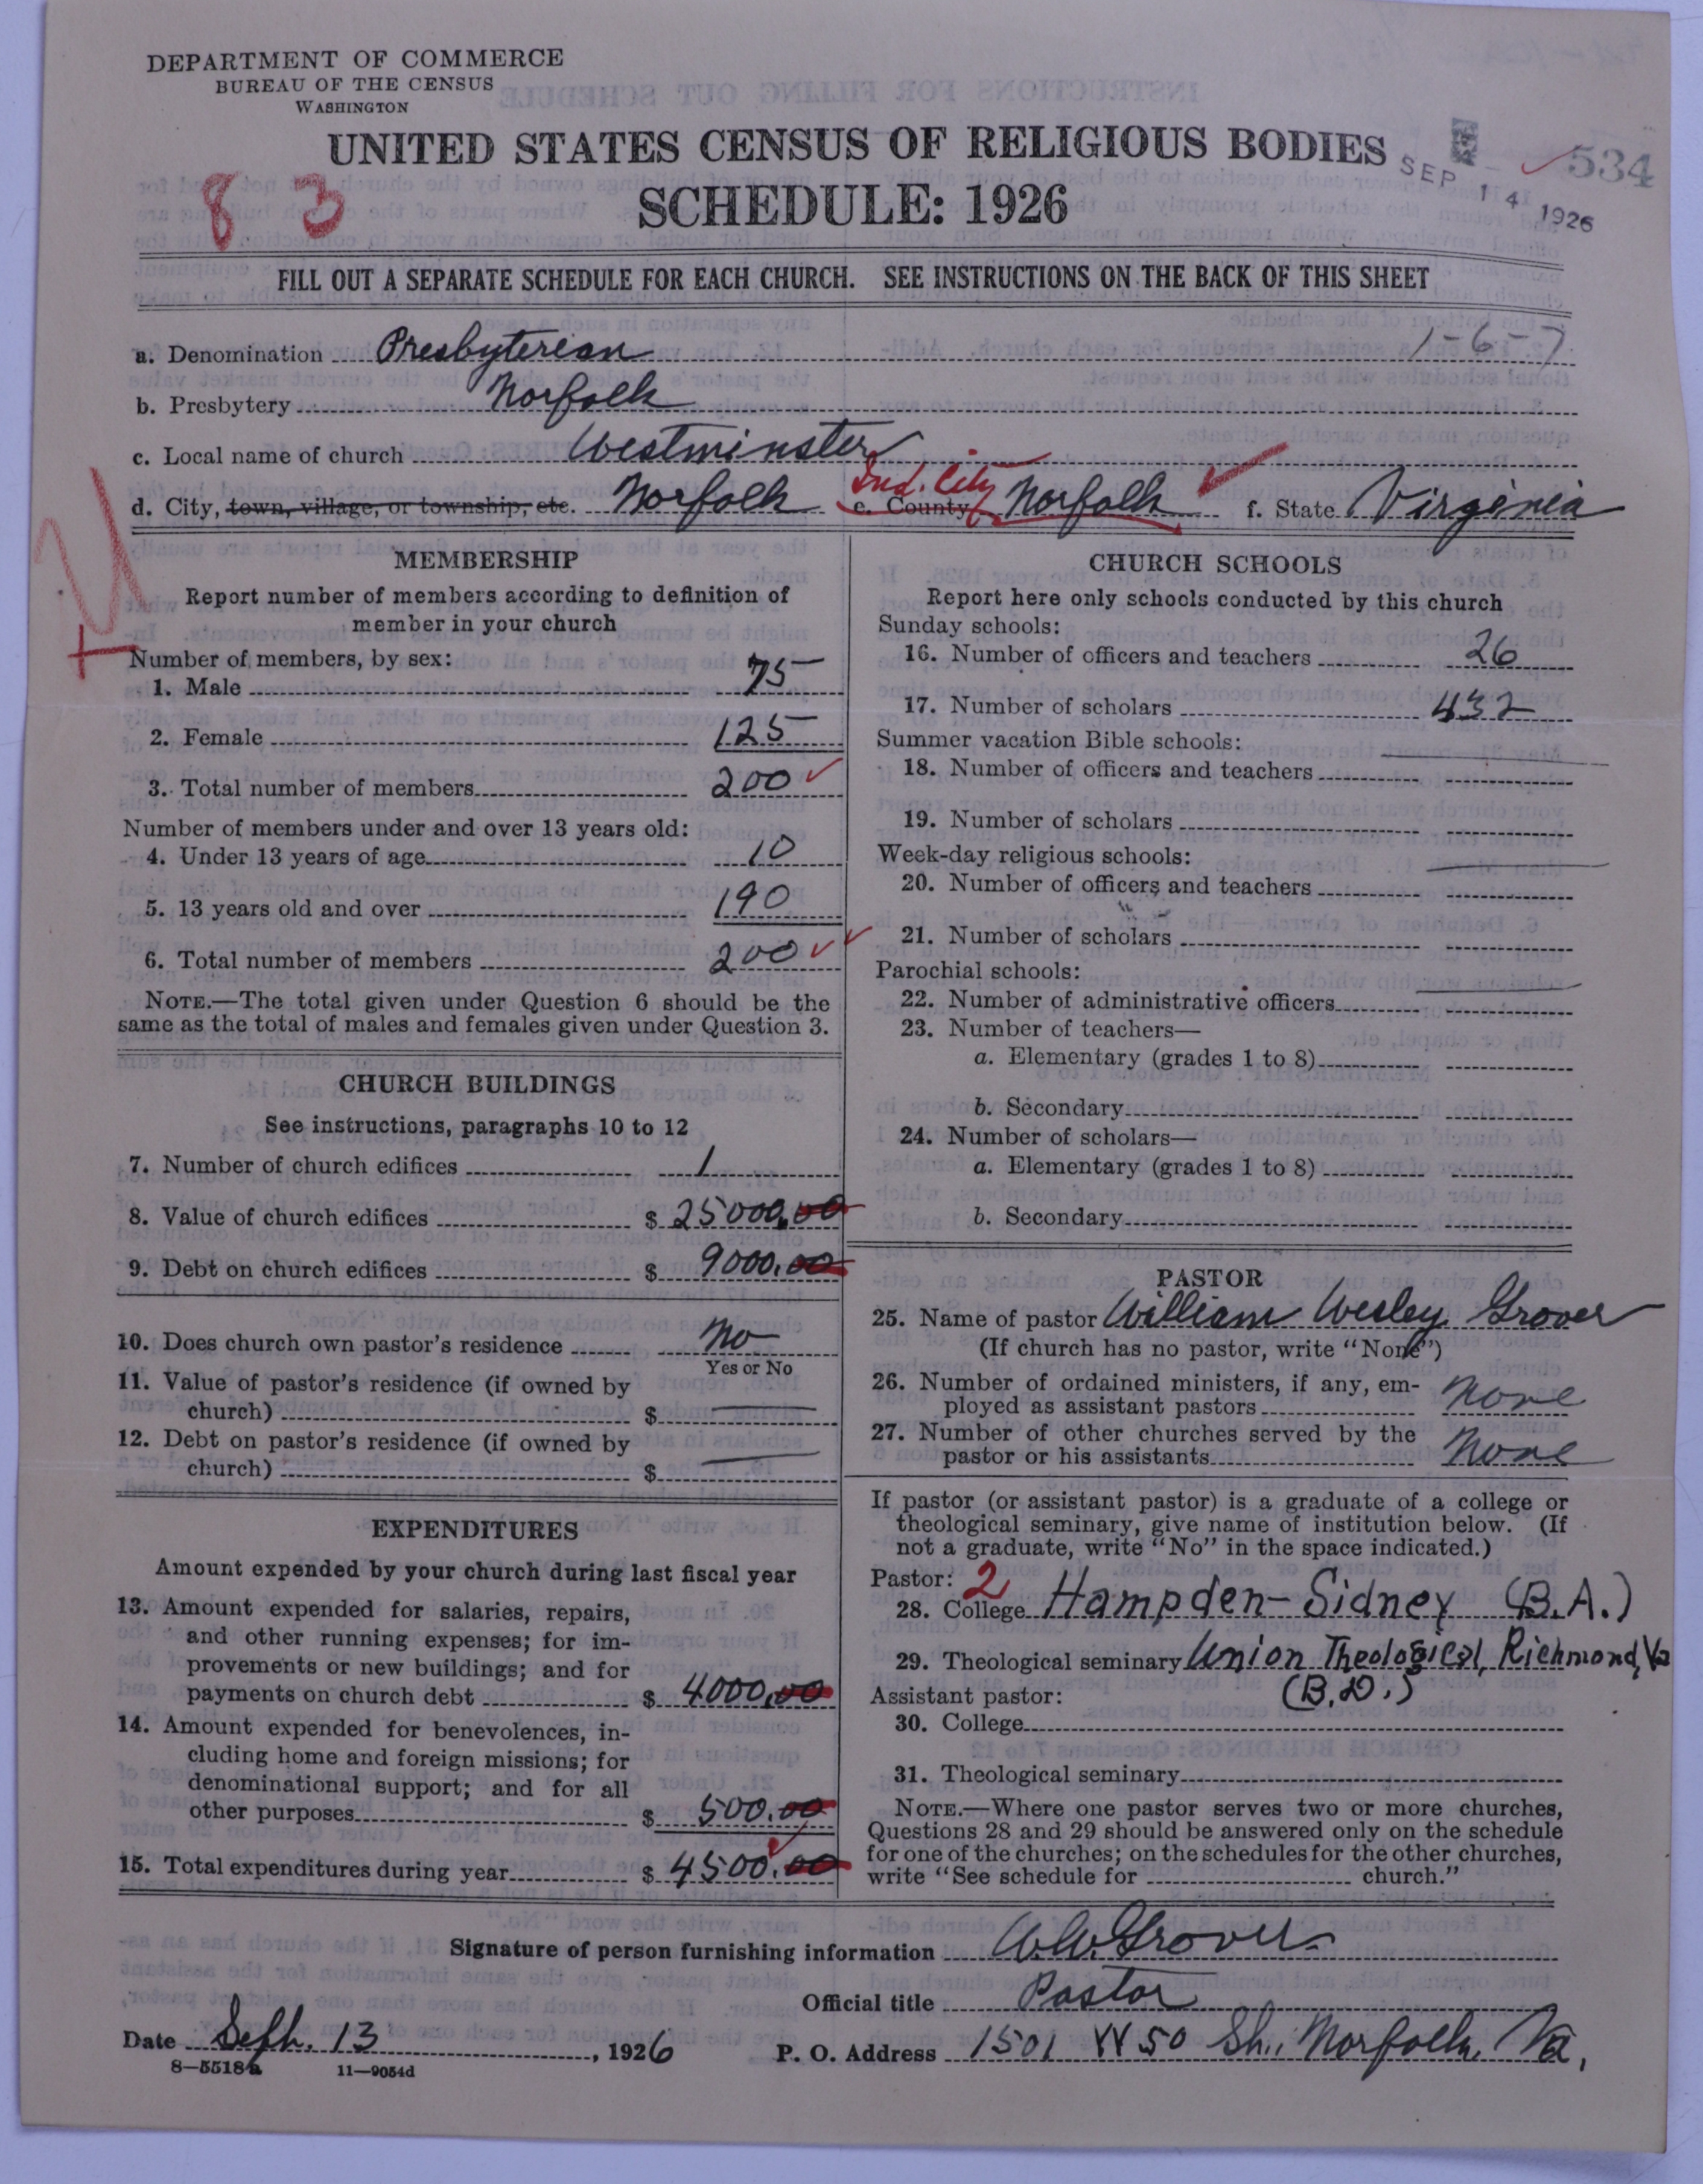 DEPARTMENT OF COMMERCE
BUREAU OF THE CENSUS
WASHINGTON
UNITED STATES CENSUS OF RELIGIOUS BODIES
SCHEDULE: 1926
8 3
SEP 14 1926
534
FILL OUT A SEPARATE SCHEDULE FOR EACH CHURCH. SEE INSTRUCTIONS ON THE BACK OF THIS SHEET
a. Denomination Presbyterian 1-6-7
b. Presbytery Norfolk
c. Local name of church Westminster
d. City, town, village, or township, etc. Norfolk e. County Ind. City Norfolk f. State Virginia
MEMBERSHIP
Report number of members according to definition of
member in your church
Number of members, by sex:
1. Male 75
2. Female 125
3. Total number of members 200
Number of members under and over 13 years old:
4. Under 13 years of age 10
5. 13 years old and over 190
6. Total number of members 200
NOTE.—The total given under Question 6 should be the
same as the total of males and females given under Question 3.
CHURCH BUILDINGS
See instructions, paragraphs 10 to 12
7. Number of church edifices 1
8. Value of church edifices $ 25000.00
9. Debt on church edifices $ 9000.00
10. Does church own pastor's residence No
Yes or No
11. Value of pastor's residence (if owned by
church) $
12. Debt on pastor's residence (if owned by
church) $
EXPENDITURES
Amount expended by your church during last fiscal year
13. Amount expended for salaries, repairs,
and other running expenses; for im-
provements or new buildings; and for
payments on church debt $ 4000.00
14. Amount expended for benevolences, in-
cluding home and foreign missions; for
denominational support; and for all
other purposes $ 500.00
15. Total expenditures during year $ 4500.00
CHURCH SCHOOLS
Report here only schools conducted by this church
Sunday schools:
16. Number of officers and teachers 26
17. Number of scholars 432
Summer vacation Bible schools:
18. Number of officers and teachers
19. Number of scholars
Week-day religious schools:
20. Number of officers and teachers
21. Number of scholars
Parochial schools:
22. Number of administrative officers
23. Number of teachers—
a. Elementary (grades 1 to 8)
b. Secondary
24. Number of scholars—
a. Elementary (grades 1 to 8)
b. Secondary
PASTOR
25. Name of pastor William Wesley Grover
(If church has no pastor, write "None")
26. Number of ordained ministers, if any, em-
ployed as assistant pastors None
27. Number of other churches served by the
pastor or his assistants None
If pastor (or assistant pastor) is a graduate of a college or
theological seminary, give name of institution below. (If
not a graduate, write "No" in the space indicated.)
Pastor: 2
28. College Hampden-Sidney (B.A.)
29. Theological seminary Union Theological, Richmond, Va
(B.D.)
Assistant pastor:
30. College
31. Theological seminary
NOTE.—Where one pastor serves two or more churches,
Questions 28 and 29 should be answered only on the schedule
for one of the churches; on the schedules for the other churches,
write "See schedule for church."
Signature of person furnishing information W.W. Grover
Official title Pastor
Date Seph. 13, 1926
P. O. Address 1501 W 50 Sh., Norfolk, Va.
8-5518a 11-9054d